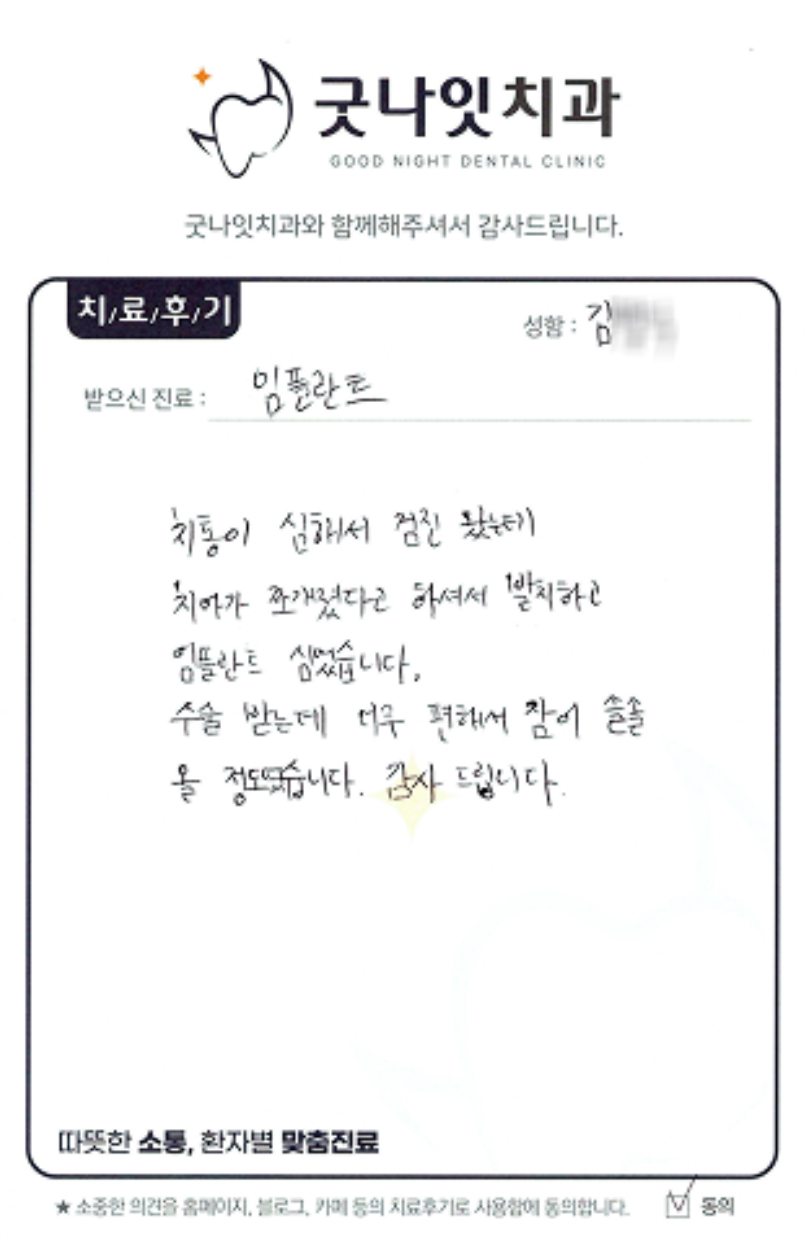 굿나잇치과
GOOD NIGHT DENTAL CLINIC
굿나잇치과와 함께해주셔서 감사드립니다.
치/료/후/기
성함 : 김
받으신 진료 : 임플란트
치통이 심해서 검진 왔는데
치아가 쪼개졌다고 하셔서 발치하고
임플란트 심었습니다.
수술 받는데 너무 편해서 잠이 솔솔
올 정도였습니다. 감사 드립니다.
따뜻한 소통, 환자별 맞춤진료
★ 소중한 의견을 홈페이지, 블로그, 카페 등의 치료후기로 사용함에 동의합니다. 동의